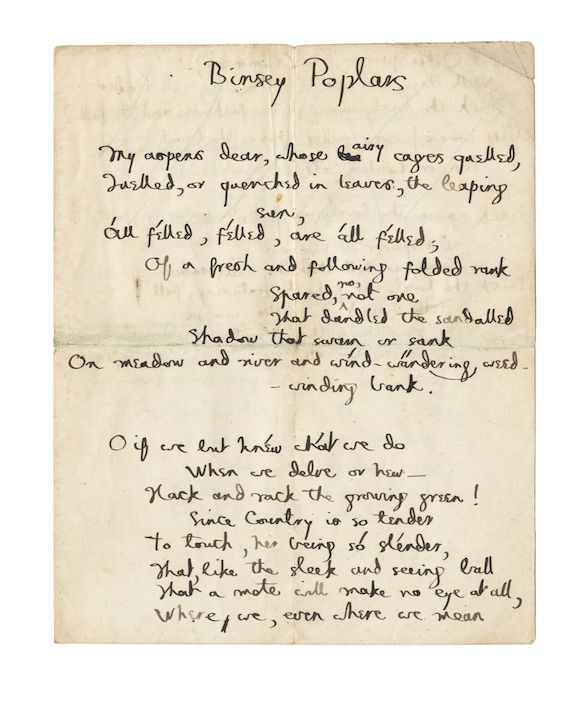 Binsey Poplars
My aspens dear, whose airy cages quelled,
Quelled, or quenched in leaves, the leaping
sun,
Áll félled, félled, are áll félled;
Of a fresh and following folded rank
Spared, no, not one
That dandled the sandalled
Shadow that swam or sank
On meadow and river and wínd-wändering weed-
-winding bank.
O if we but knéw whát we do
When we delve or hew—
Hack and rack the growing green!
Since Country is so tender
To touch, her being só slénder,
That, like the sleek and seeing ball
That a mote will make no eye at all,
Where, we, even where we mean